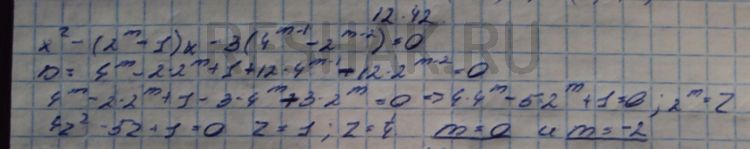 12.42
x² - (2^m - 1)x - 3(4^(m-1) - 2^(m-2)) = 0
D = 4^m - 2·2^m + 1 + 12·4^(m-1) - 12·2^(m-2) = 0
4^m - 2·2^m + 1 - 3·4^m + 3·2^m = 0 => 4·4^m - 5·2^m + 1 = 0; 2^m = Z
4Z² - 5Z + 1 = 0 Z = 1; Z = ¼ m = 0 и m = -2
RESHAK.RU